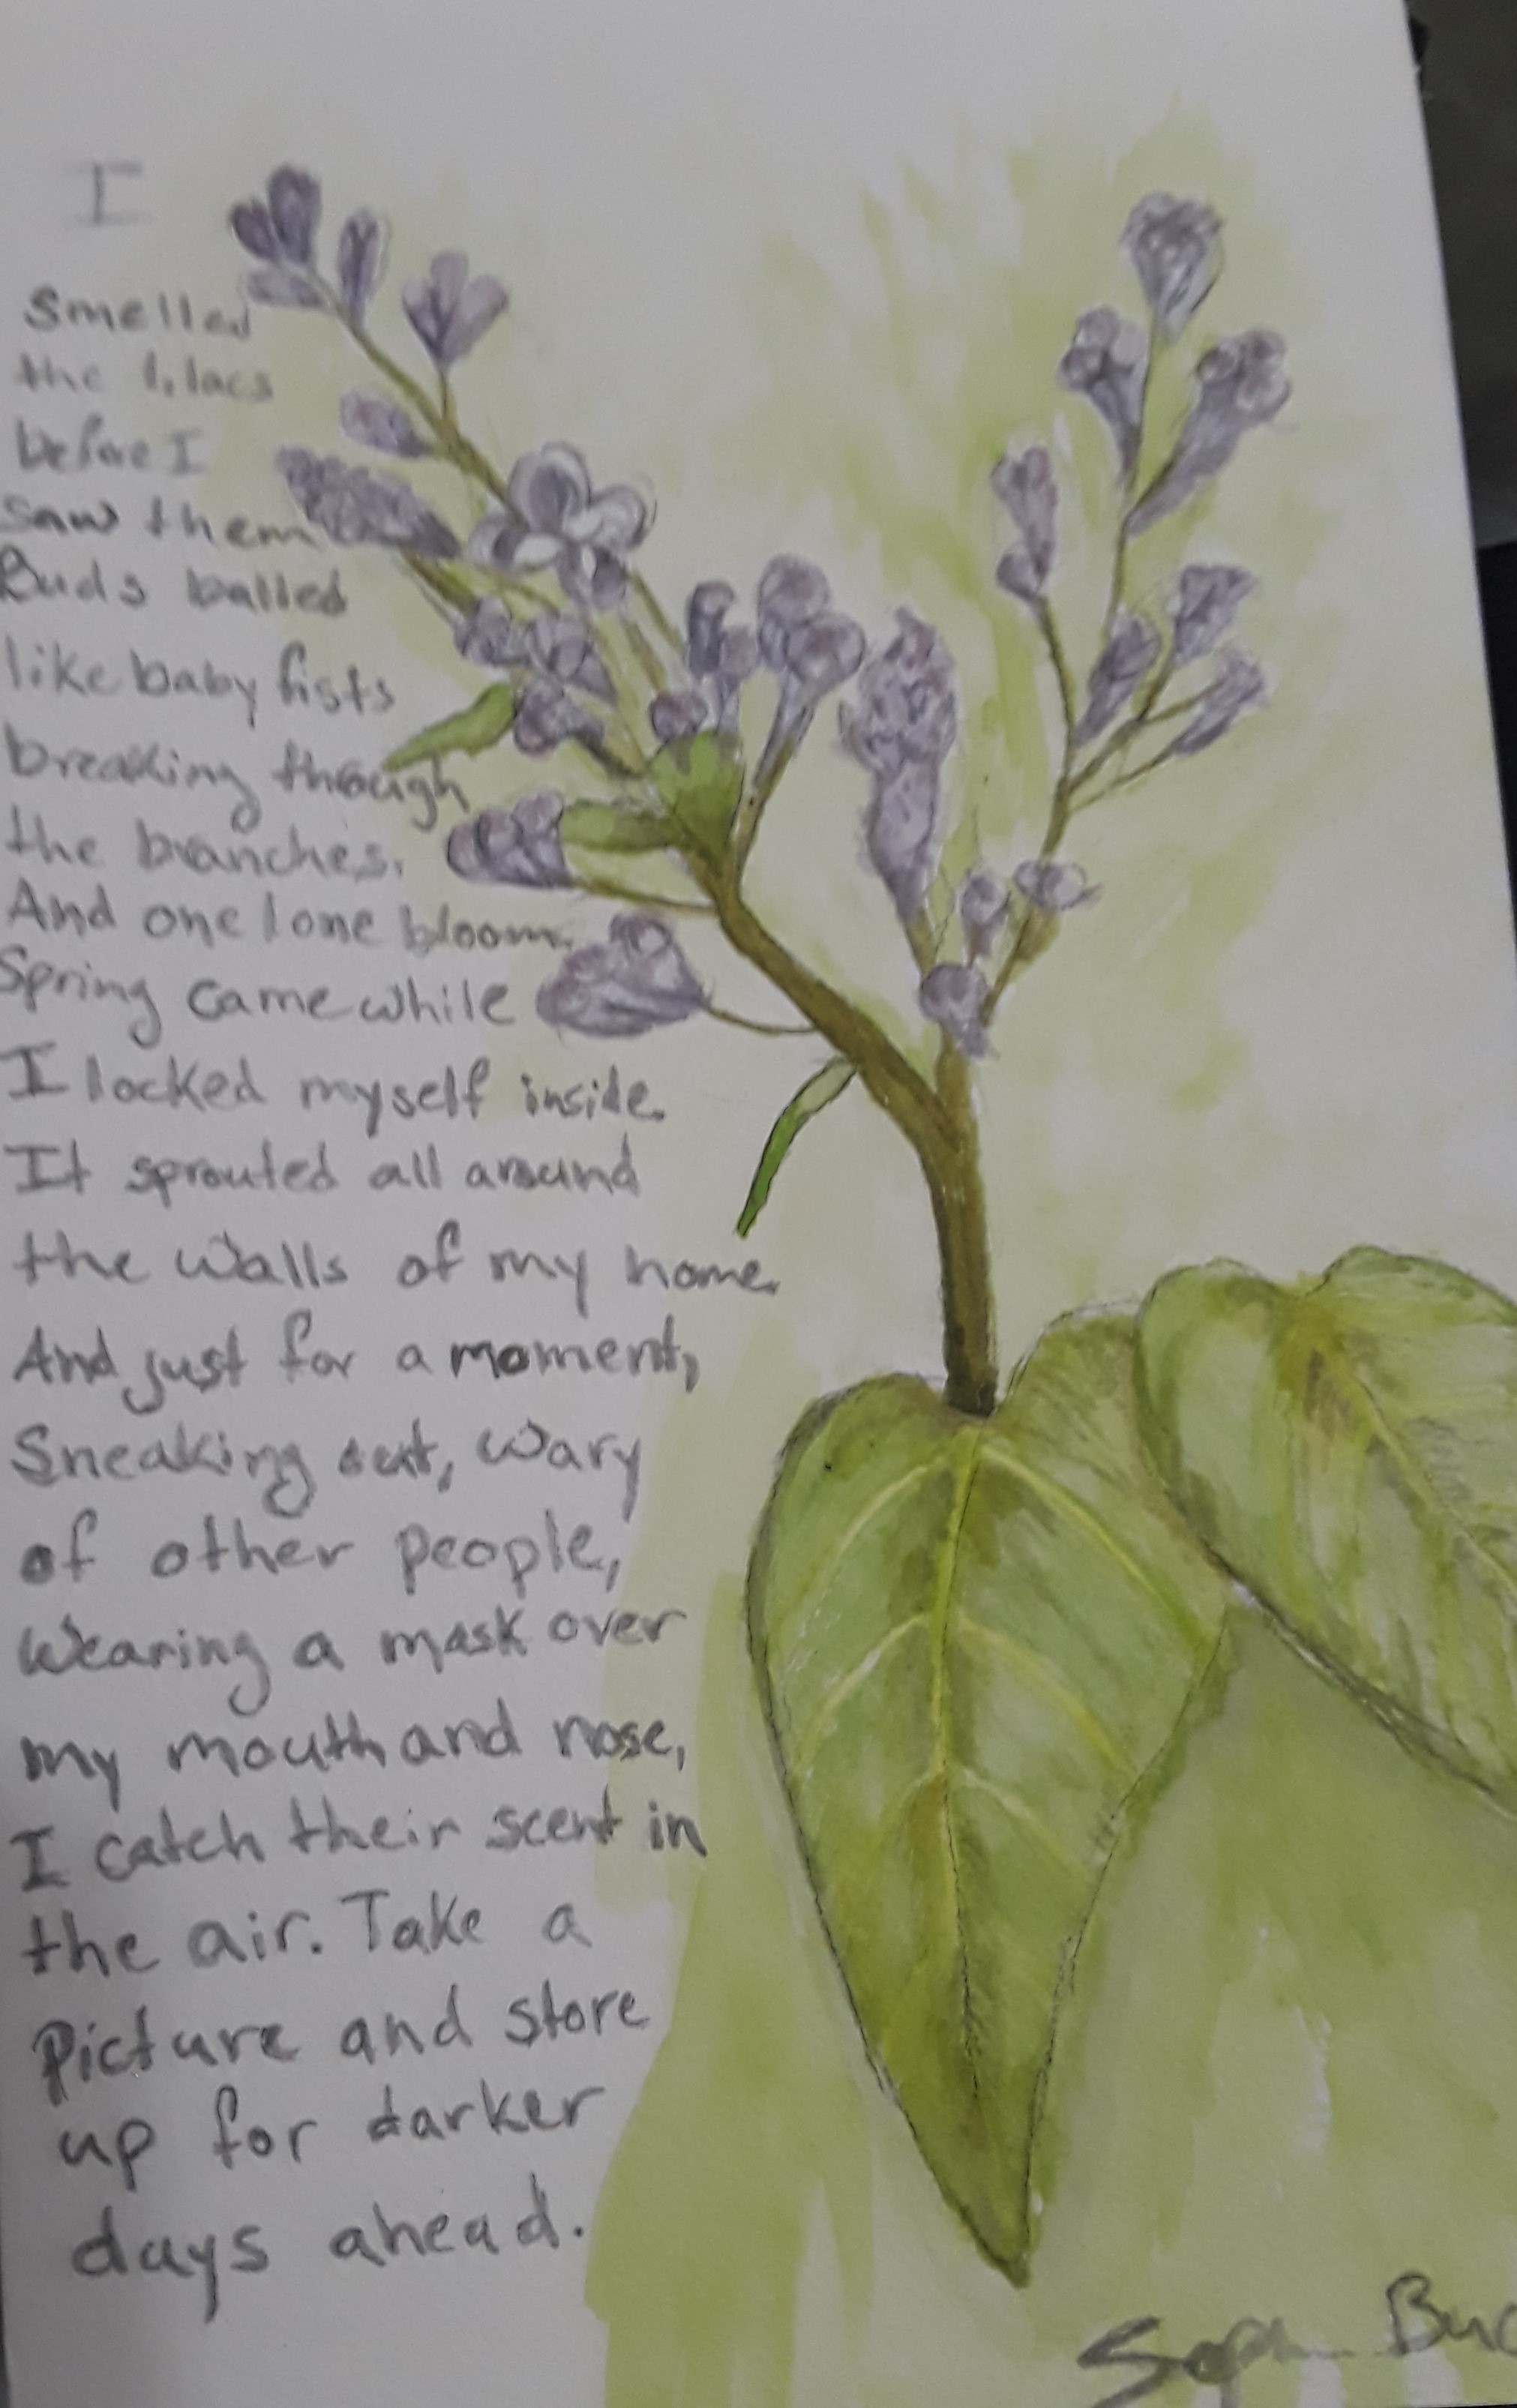 I
smelled
the lilacs
before I
saw them
Buds balled
like baby fists
breaking through
the branches.
And one lone bloom.
Spring came while
I locked myself inside.
It sprouted all around
the walls of my home.
And just for a moment,
Sneaking out, wary
of other people,
Wearing a mask over
my mouth and nose,
I catch their scent in
the air. Take a
picture and store
up for darker
days ahead.